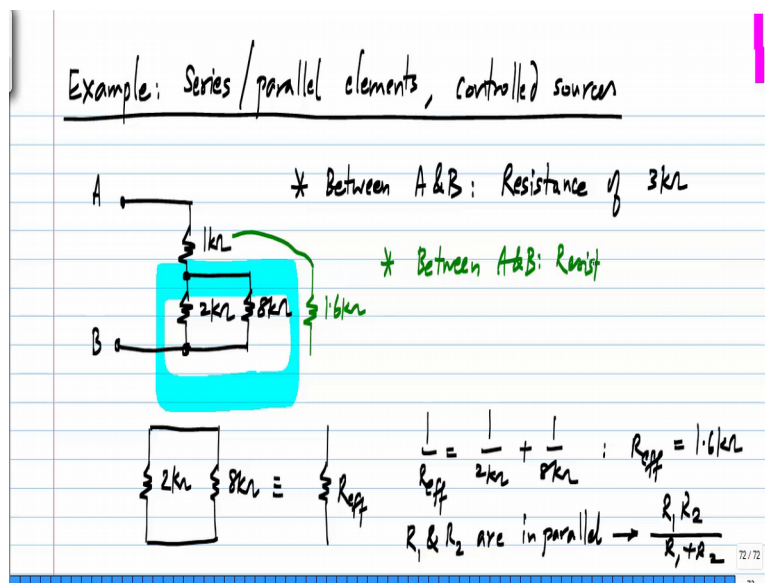 Example: Series/parallel elements, controlled sources
A
* Between A&B: Resistance of 3kΩ
1kΩ
* Between A&B: Resist
2kΩ 8kΩ 1.6kΩ
B
2kΩ 8kΩ ≡ Reff
1/Reff = 1/2kΩ + 1/8kΩ : Reff = 1.6kΩ
R1 & R2 are in parallel → R1R2/R1+R2
72 / 72